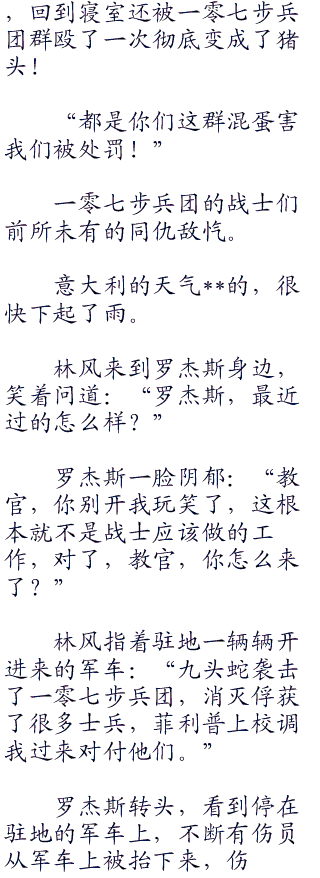 ，回到寝室还被一零七步兵
团群殴了一次彻底变成了猪
头！
“都是你们这群混蛋害
我们被处罚！”
一零七步兵团的战士们
前所未有的同仇敌忾。
意大利的天气**的，很
快下起了雨。
林风来到罗杰斯身边，
笑着问道：“罗杰斯，最近
过的怎么样？”
罗杰斯一脸阴郁：“教
官，你别开我玩笑了，这根
本就不是战士应该做的工
作，对了，教官，你怎么来
了？”
林风指着驻地一辆辆开
进来的军车：“九头蛇袭击
了一零七步兵团，消灭俘获
了很多士兵，菲利普上校调
我过来对付他们。”
罗杰斯转头，看到停在
驻地的军车上，不断有伤员
从军车上被抬下来，伤